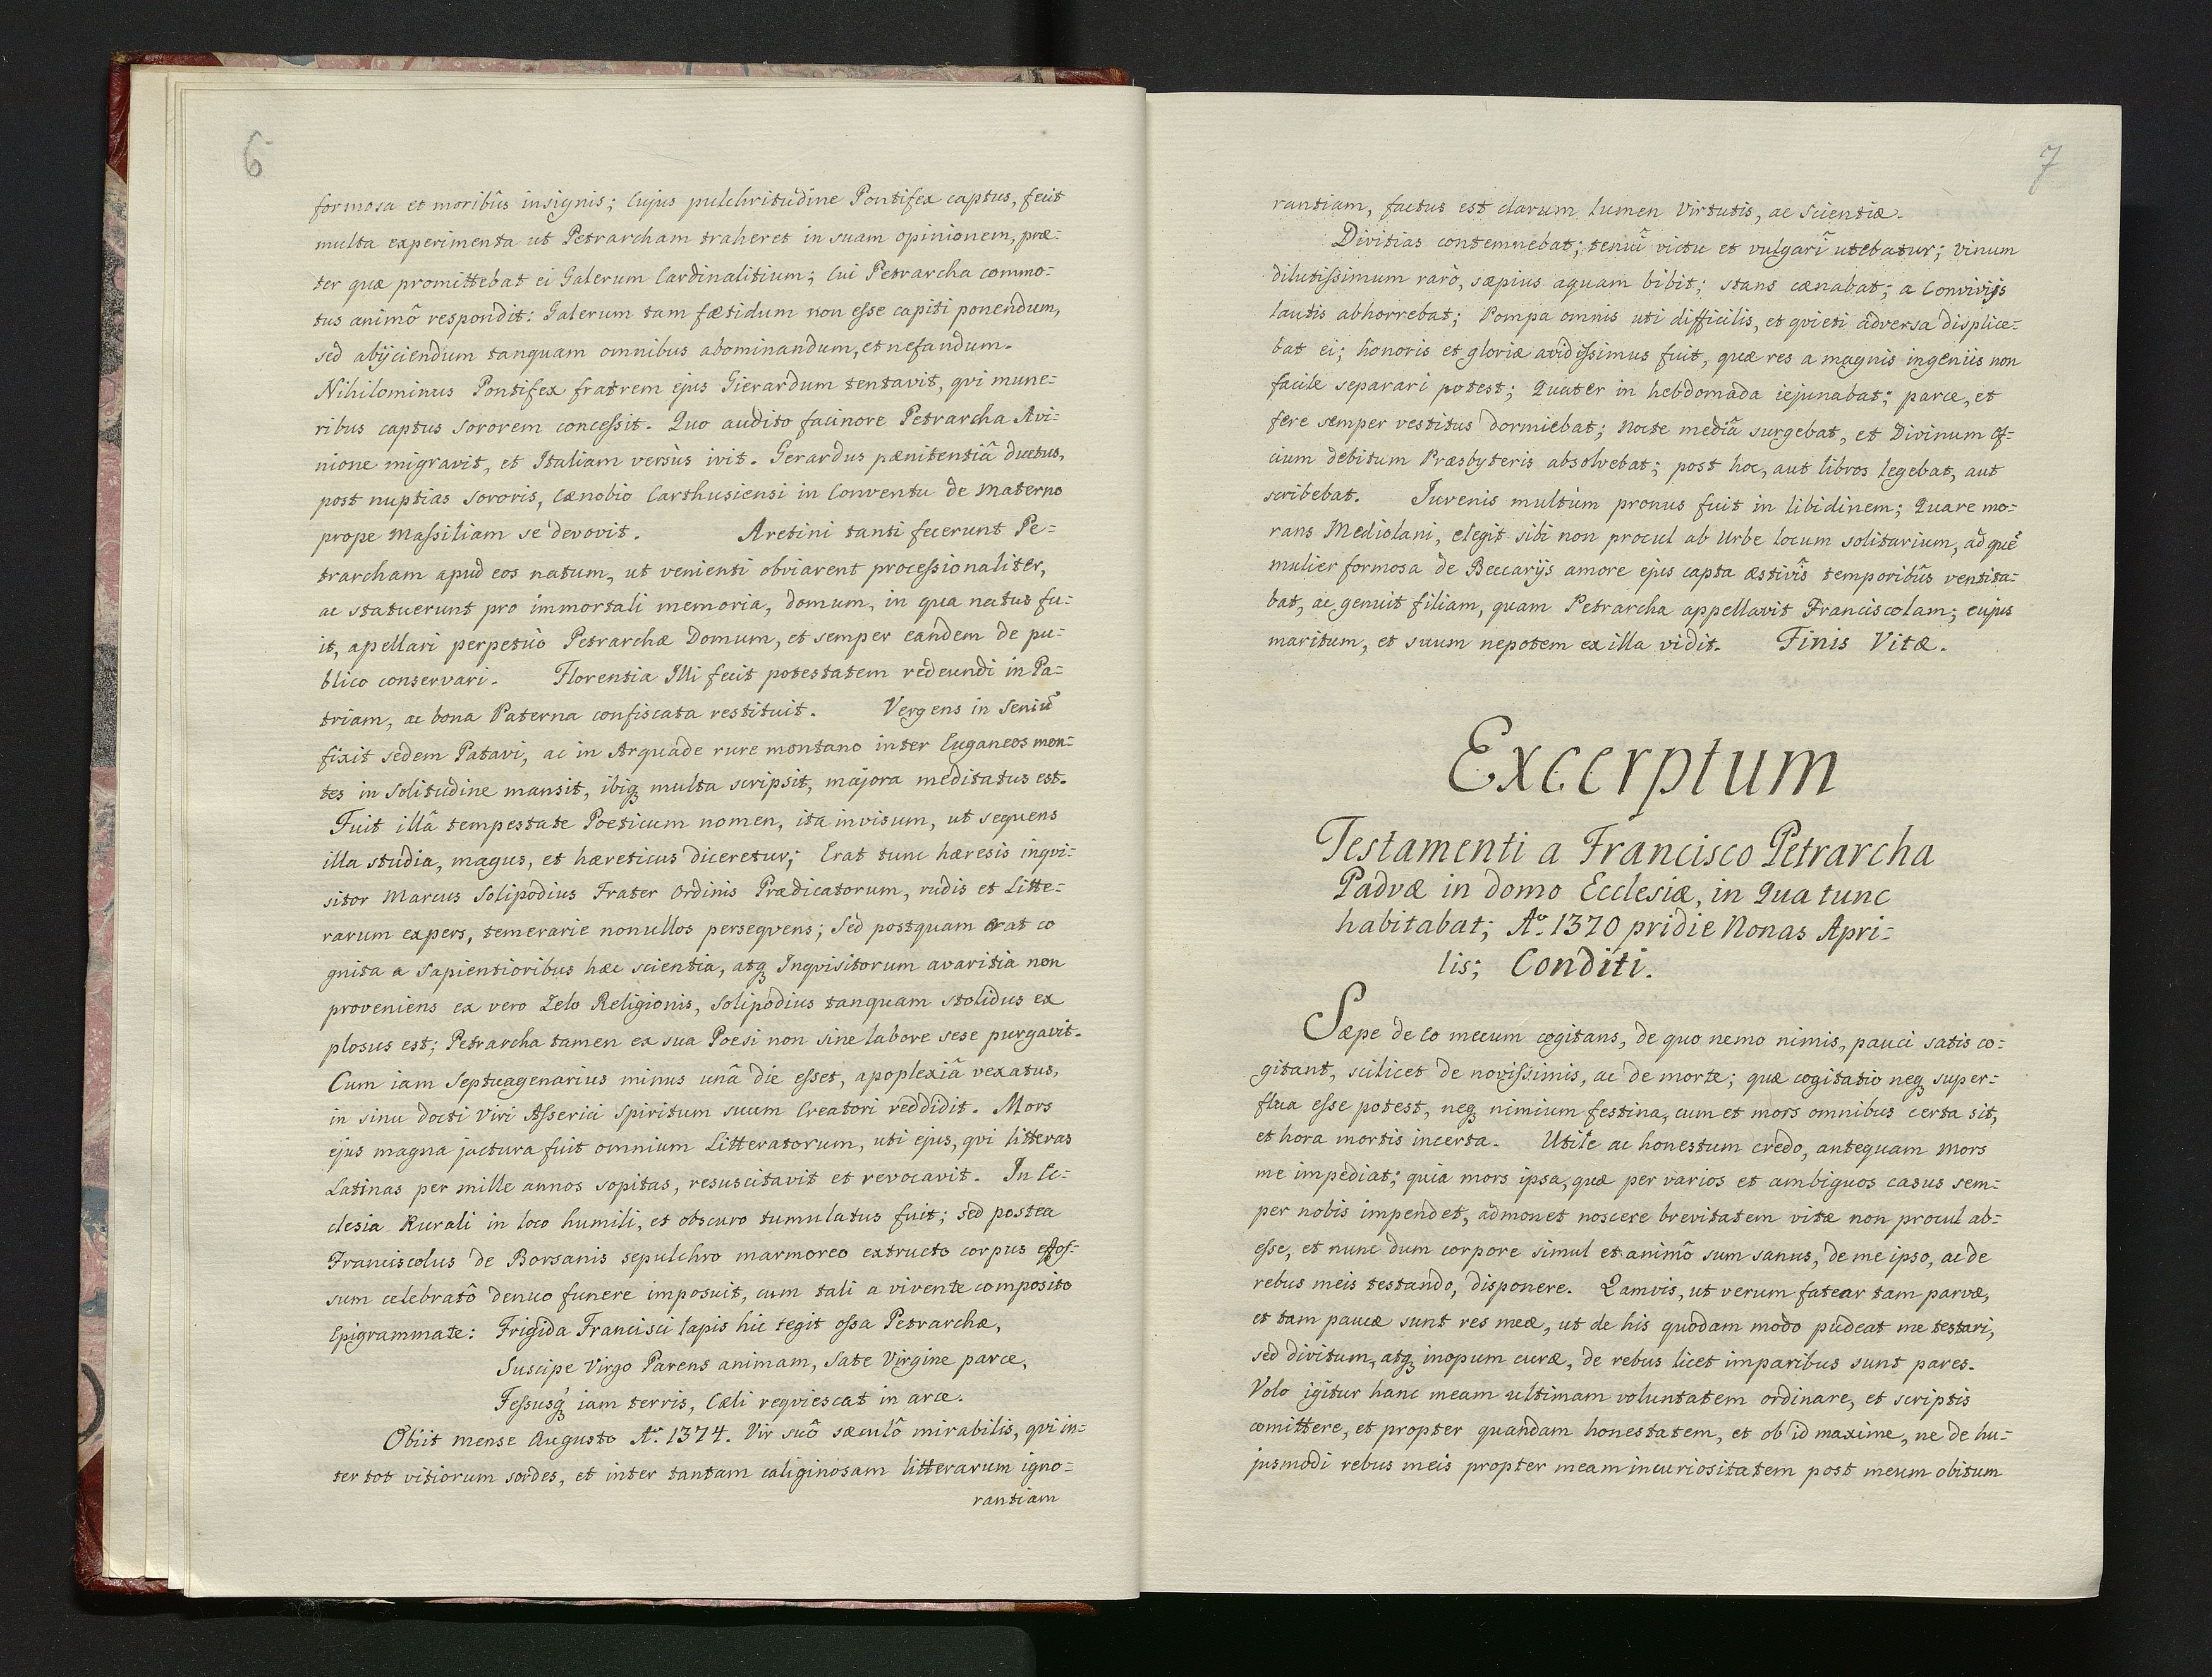 6
formosa et moribûs insignis; Cujus pulchritudine Pontifex captus, fecit
multa experimenta ut Petrarcham traheret in suam opinionem, præ=
ter quæ promittebat ei Galerum Cardinalitium; Cui Petrarcha commo=
tus animô respondit: Galerum tam fætidum non esse capiti ponendum,
sed abijciendum tanquam omnibus abominandum, et nefandum.
Nihilominus Pontifex fratrem ejus Gierardum tentavit, qvi mune=
ribus captus sororem concessit. Quo audito facinore Petrarcha Avi=
nione migravit, et Italiam versùs ivit. Gerardus pænitentiâ ductus,
post nuptias sororis, Cænobio Carthusiensi in Conventu de Materno
prope Massiliam se devovit. Aretini tanti fecerunt Pe=
trarcham apud eos natum, ut venienti obviarent processionaliter,
ac statuerunt pro immortali memoria, domum, in qua natus fu=
it, apellari perpetùo Petrarchæ Domum, et semper eandem de pu=
blico conservari. Florentia Illi fecit potestatem redeundi in Pa=
triam, ac bona Paterna confiscata restituit. Vergens in Seniũ
fixit sedem Patavi, ac in Arquade rure montano inter Euganeos mon=
tes in Solitudine mansit, ibiq multa scripsit, majora meditatus est.
Fuit illâ tempestate Poeticum nomen, ita invisum, ut sequens
illa studia, magus, et hæreticus diceretur; Erat tunc hæresis inqvi=
sitor Marcus Solipodius Frater Ordinis Prædicatorum, rudis et Litte=
rarum expers, temerarie nonullos perseqvens; Sed postquam erat co
gnita a Sapientioribus hæc scientia, atq Inqvisitorum avaritia non
proveniens ex vero Zelo Religionis, Solipodius tanquam stolidus ex
plosus est; Petrarcha tamen ex sua Poesi non sine labore sese purgavit.
Cum iam Septuagenarius minus unâ die esset, apoplexiâ vexatus,
in sinu docti Viri Asserici Spiritum suum Creatori reddidit. Mors
ejus magna jactura fuit omnium Litteratorum, uti ejus, qvi litteras
Latinas per mille annos sopitas, resuscitavit et revocavit. In Ec=
clesia Rurali in loco humili, et obscuro tumulatus fuit; sed postea
Franciscolus de Borsanis sepulchro marmoreo extructo corpus effos=
sum celebratô denuo funere imposuit, cum tali a vivente composito
Epigrammate: Frigida Francisci lapis hic tegit ossa Petrarchæ,
Suscipe Virgo Parens animam, Sate Virgine parce,
Fessusq iam terris, Cæli reqviescat in arce.
Obiit mense Augusto Aº. 1374. Vir suô sæculô mirabilis, qvi in=
ter tot vitiorum sordes, et inter tantam caliginosam litterarum igno=
rantiam
7
rantiam, factus est clarum lumen Virtutis, ac Scientiæ.
Divitias contemnebat; tenui victu et vulgari utebatur; vinum
dilutissimum rarò, sæpius aquam bibit; stans cænabat; a Convivijs
lautis abhorrebat; Pompa omnis uti difficilis, et qvieti adversa displice=
bat ei; honoris et gloriæ avidissimus fuit, quæ res a magnis ingeniis non
facile separari potest; Quater in hebdomada iejunabat; parce, et
fere semper vestitus dormiebat; Nocte mediâ surgebat, et Divinum Of=
cium debitum Præsbyteris absolvebat; post hoc, aut libros legebat, aut
scribebat. Juvenis multùm pronus fuit in libidinem; Quare mo=
rans Mediolani, elegit sibi non procul ab Urbe locum solitarium, ad quẽ
mulier formosa de Beccarijs amore ejus capta æstivîs temporibûs ventita=
bat, ac genuit filiam, quam Petrarcha appellavit Franciscolam; cujus
maritum, et suum nepotem ex illa vidit. Finis Vitæ.
Excerptum
Testamenti a Francisco Petrarcha
Padvæ in domo Ecclesiæ, in Qua tunc
habitabat; Aº. 1370 pridie Nonas Apri=
lis; Conditi.
Sæpe de Eo mecum cogitans, de quo nemo nimis, pauci satis co=
gitant, scilicet de novissimis, ac de morte; quæ cogitatio neq super=
flua esse potest, neq nimium festina, cum et mors omnibus certa sit,
et hora mortis incerta. Utile ac honestum credo, antequam Mors
me impediat; quia mors ipsa, quæ per varios et ambiguos casus sem=
per nobis impendet, admonet noscere brevitatem vitæ non procul ab=
esse, et nunc dum corpore simul et animô sum sanus, de me ipso, ac de
rebus meis testando, disponere. Qamvis, ut verum fatear tam parvæ,
et tam paucæ sunt res meæ, ut de his quodam modo pudeat me testari,
sed divitum, atq inopum curæ, de rebus licet imparibus sunt pares.
Volo igitur hanc meam ultimam voluntatem ordinare, et scriptis
comittere, et propter quandam honestatem, et ob id maxime, ne de hu=
jusmodi rebus meis propter meam incuriositatem post meum obitum